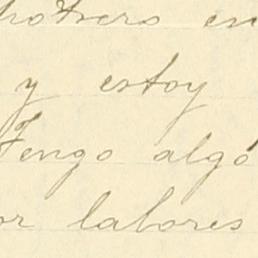 potrero en
y estoy
Tengo algo
or labores